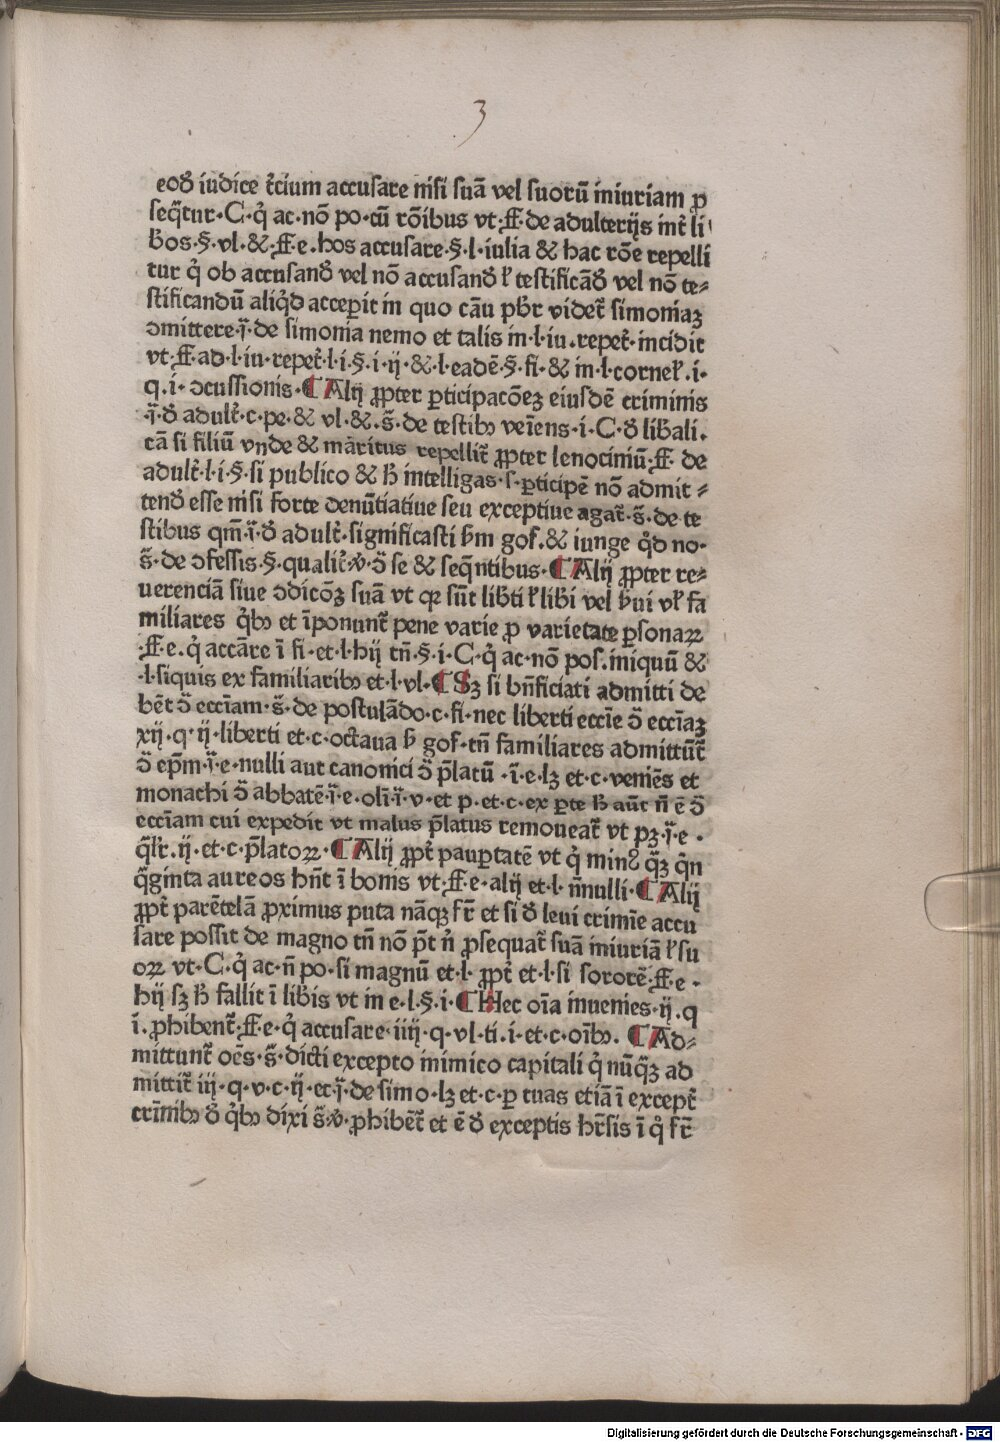 3
eod̄ iudice t̄cium accusare nisi suā vel suorū iniuriam ꝓ
seq̄tur·C·q̇ ac·nō po·cū rōibus vt·ff·de adulterijs int̄ li
b̄os·§·vl·& ·ff·e·hos accusare·§·l·iulia & hac rōe repelli
tur q̇ ob accusand̄ vel nō accusand̄ ł testificād̄ vel nō te⸗
stificandū aliq̇d acceꝑit in quo cāu pb̄r videt̄ simoniaꝫ
ↄmittere·j̄·de simonia nemo et talis in·l·iu·repet̄·incidit
vt·ff·ad·l·iu·repet̄·l·i·§·i·ij·&·l·eadē·§·fi·& in·l·corneł·i·
q·i·ↄcussionis·¶Alij ꝓpter ꝑticipacōeꝫ eiusdē criminis
·j̄·d̄ adult̄·c·pe·& vl·&·s̄·de testibꝫ veīens·i·C·d̄ lib̄ali·
cā si filiū vnde & maritus repellit̄ ꝓpter lenociniū·ff·de
adult̄·l·i·§·si publico & h̄ intelligas·s·ꝑticipē nō admit⸗
tend̄ esse nisi forte denūtiatiue seu exceptiue agat̄·s̄·de te
stibus qm̄·j̄·d̄ adult̄·significasti b̄m gof·& iunge q̇d no·
s̄·de ↄfessis·§·qualit̄·v̇·ō se & seq̄ntibus·¶Alij ꝓpter re⸗
uerenciā siue ↄdicōꝫ suā vt qꝛ sūt lib̄ti ł lib̄i vel b̄ui vł fa
miliares q̇bꝫ et īponunt̄ pene varie ꝓ varietate ꝑsonaꝝ
·ff·e·q̇ accāre ī fi·et·l·hij tn̄·§·i·C·q̇ ac·nō pos·iniquū &
·l·siquis ex familiaribꝫ et·l·vl·¶Sꝫ si bn̄ficiati admitti de
bēt ō ecc̄iam·s̄·de postulādo·c·fi·nec liberti ecc̄ie ō ecc̄iaꝫ
xij·q·ij·liberti et·c·octaua b̄ gof·tn̄ familiares admittūt̄
ō ep̄m·j̄·e·nulli aut canonici ō p̄latū ·j̄·e·lꝫ et·c·veniēs et
monachi ō abbatē·j̄·e·olī·j̄·v·et p·et·c·ex ꝑte h̄ aūt n̄ ē ō
ecc̄iam cui expedit vt malus p̄latus remoueat̄ vt pꝫ·j̄·e·
q̄lr̄·ij·et·c·p̄latoꝝ·¶Alij ꝓpt̄ pauꝑtatē vt q̇ minꝰ q̄ꝫ q̄n
q̄ginta aureos hn̄t ī bonis vt·ff·e·alij et·l·n̄nulli·¶Alij
ꝓpt̄ parētelā ꝓximus puta nāqꝫ fr̄ et si d̄ leui crimīe accu
sare possit de magno tn̄ nō p̄t n̄ ꝓsequat̄ suā iniuriā ł su
oꝝ vt·C·q̇ ac·n̄ po·si magnū et·l·ꝓpt̄ et·l·si sororē·ff·e·
hij sꝫ h̄ fallit ī lib̄is vt in e·l·§·i·¶Hec oīa inuenies·ij·q
ī·ꝓhibent̄·ff·e·q̇ accusare·iiij·q·vl·ti·i·et·c·oībꝫ· ¶Ad⸗
mittunt̄ oēs·s̄·dicti excepto inimico capitali q̇ nūq̄ꝫ ad
mittit̄ iij·q·v·c·ij·et·j̄·de simo·lꝫ et·c·ꝑ tuas etiā ī except̄
crīnibꝫ d̄ q̇bꝫ dixi s̄·v̇·ꝓhibēt̄ et ē d̄ exceptis hr̄sis ī q̇ fr̄
Digitalisierung gefördert durch die Deutsche Forschungsgemeinschaft - DFG